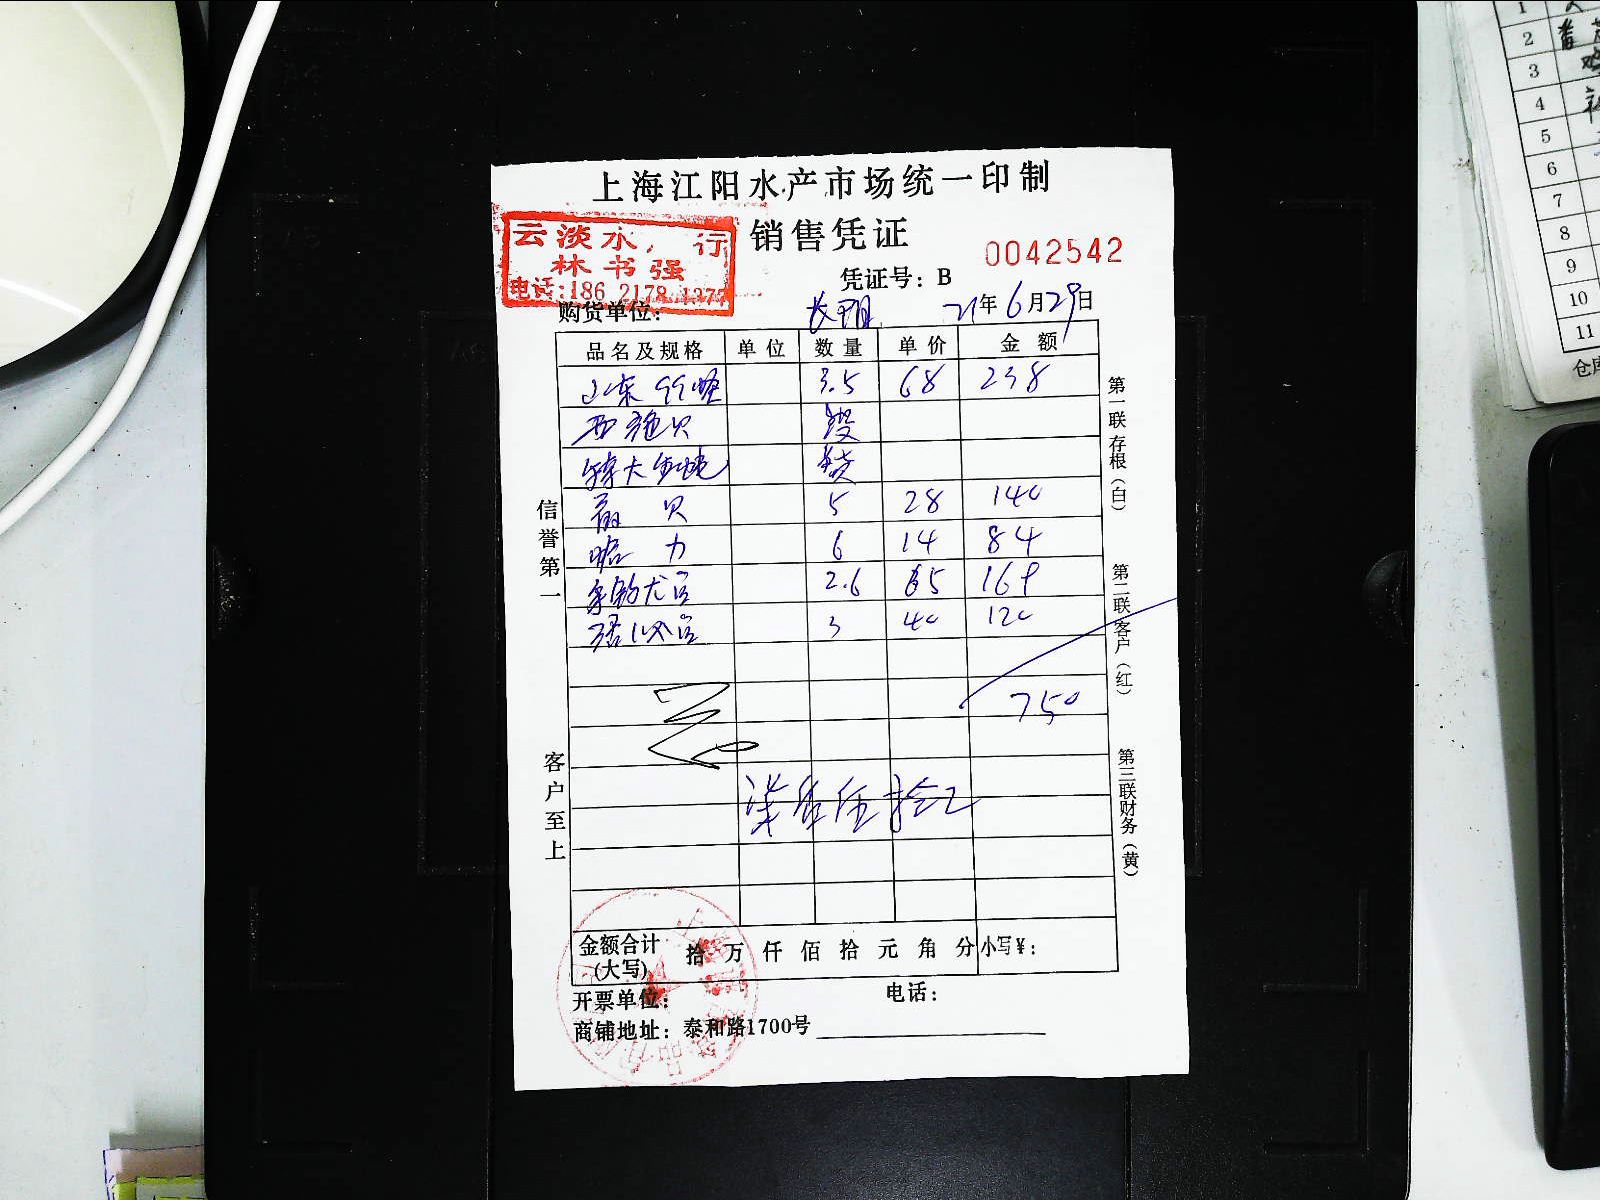 上海江阳水产市场统一印制
销售凭证
云淡水 行
林书强
电话:186 2178 1277
0042542
凭证号：B
购货单位：
21年6月29日
品名及规格 单位 数量 单价 金额
山东 3.5 68 238
西施贝
特大
扇贝 5 28 140
力 6 14 84
2.6 65 169
3 40 120
750
柒佰伍拾元
金额合计(大写) 拾 万 仟 佰 拾 元 角 分 小写¥：
开票单位： 电话：
商铺地址：泰和路1700号
信誉第一
客户至上
第一联存根（白）
第二联客户（红）
第三联财务（黄）
1
2
3
4
5
6
7
8
9
10
11